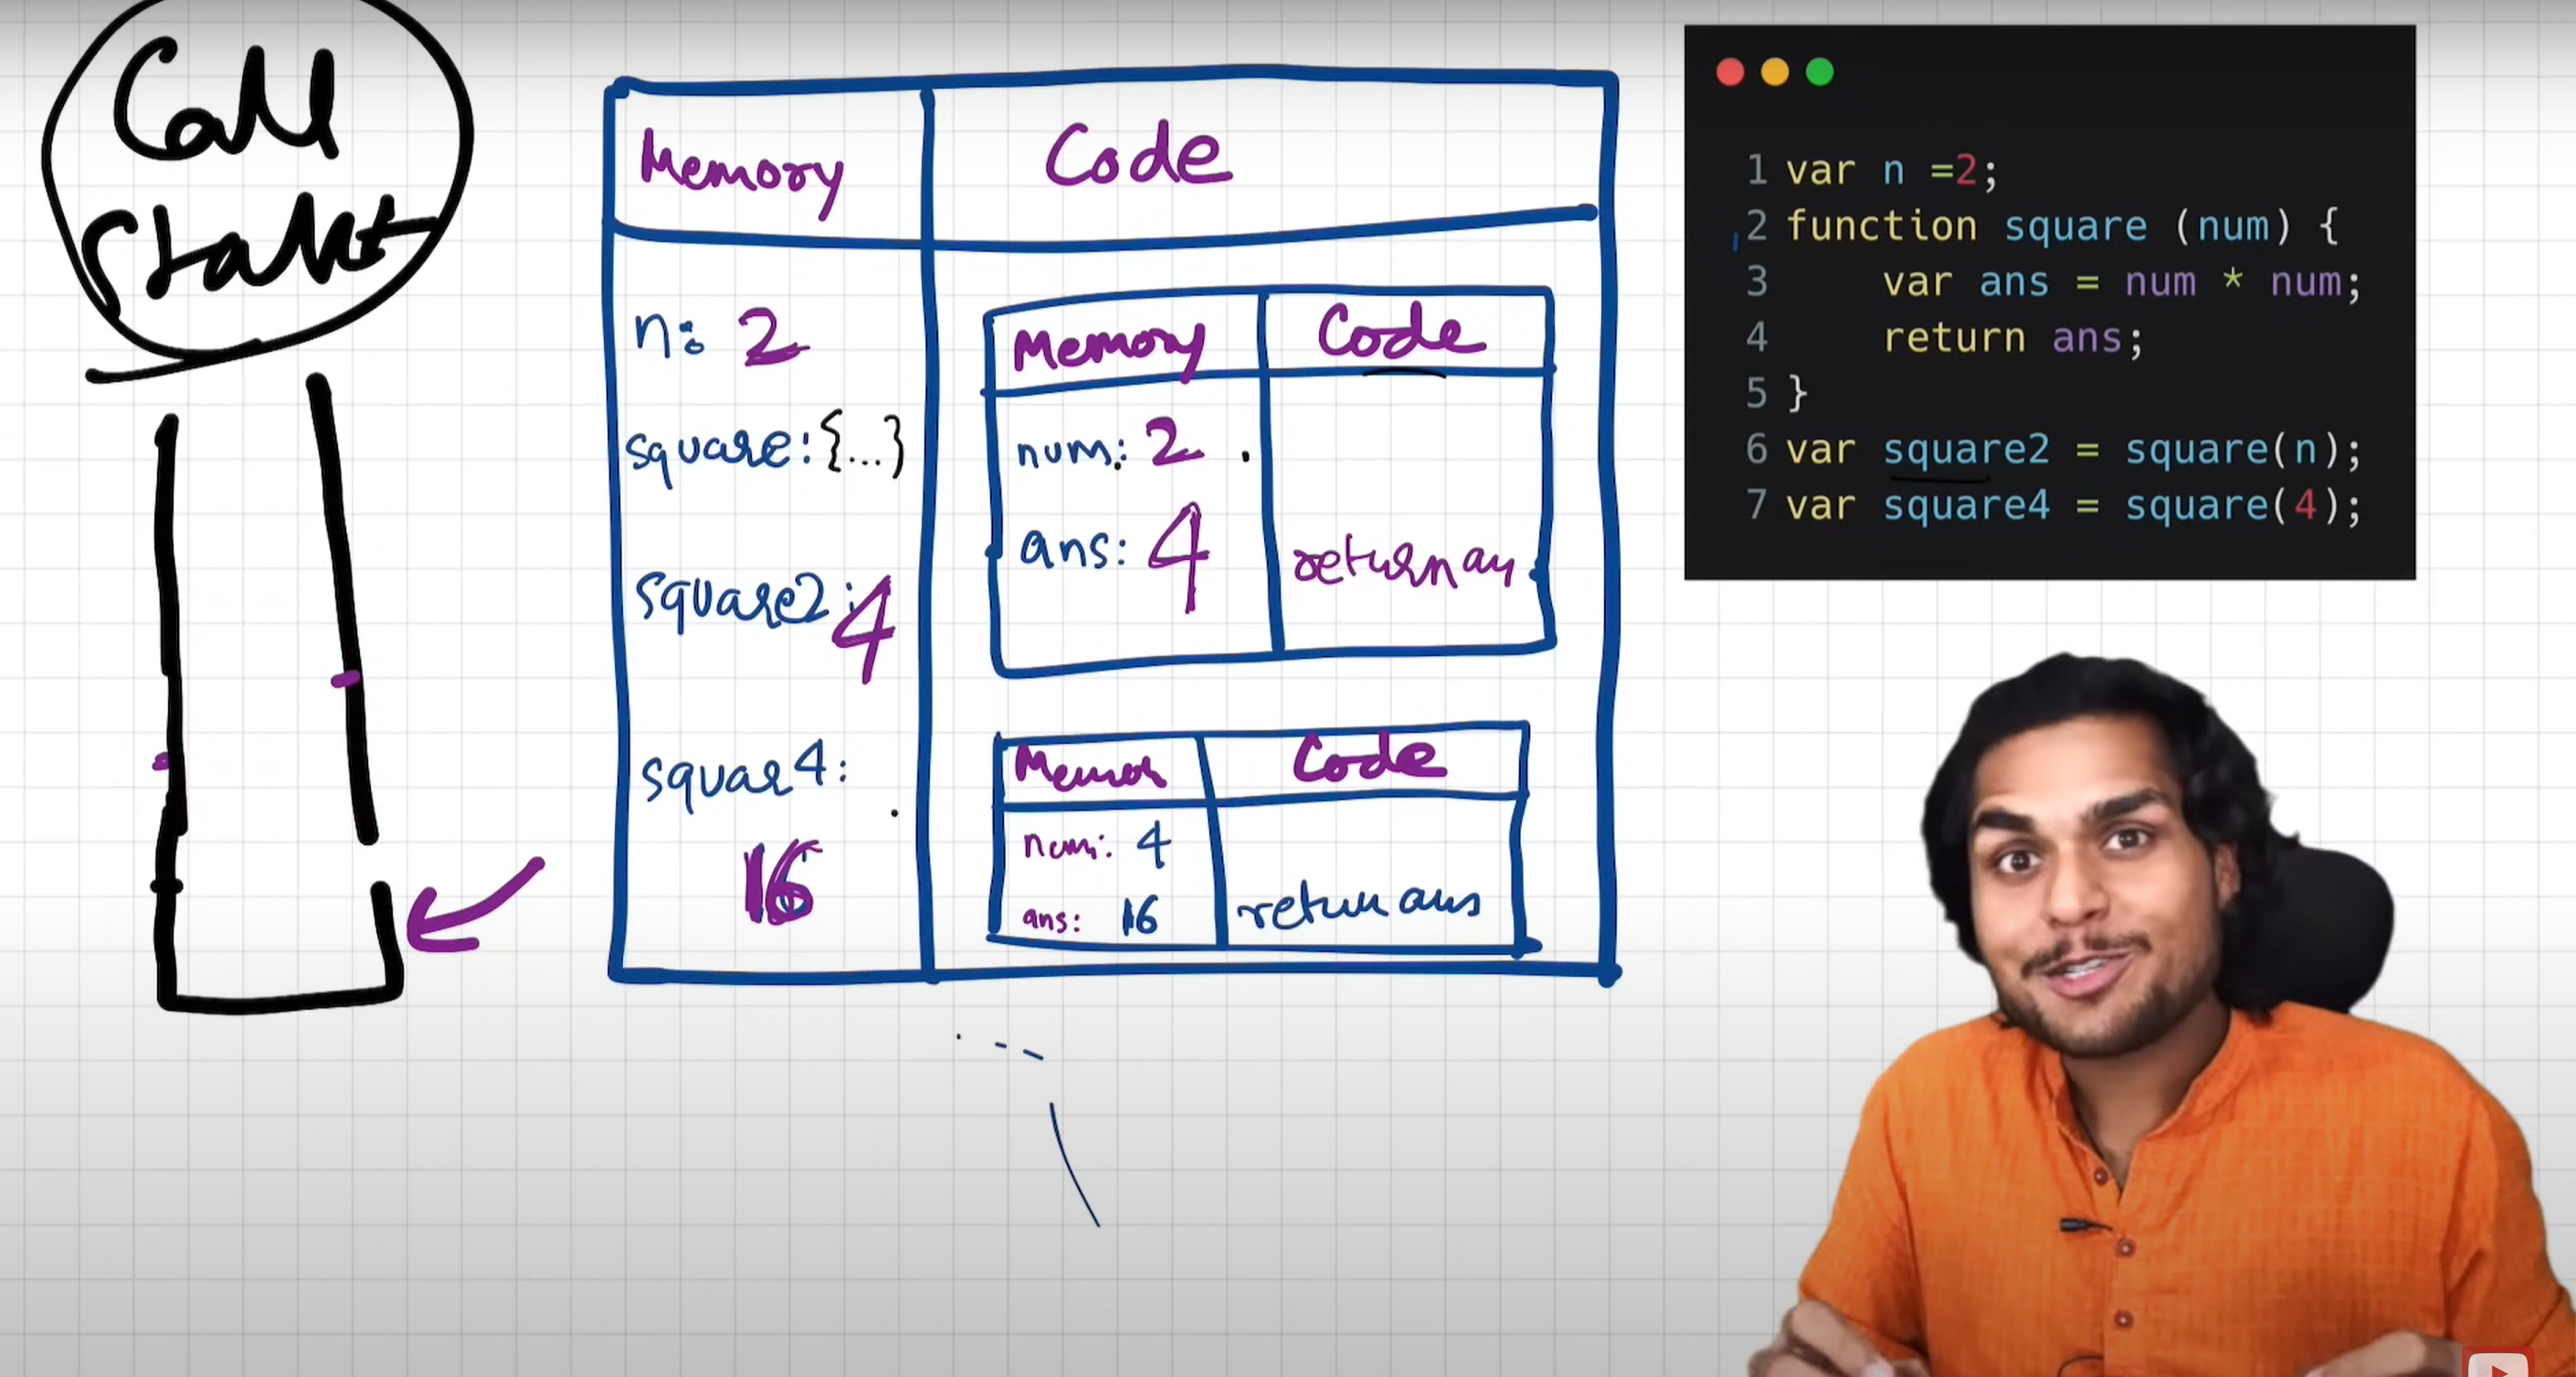 Call
Stack
Memory
Code
n: 2
square: {...}
square2: 4
squar4:
16
Memory
Code
num: 2
ans: 4
return an
Code
num: 4
ans: 16
return ans
1 var n =2;
2 function square (num) {
3 var ans = num * num;
4 return ans;
5 }
6 var square2 = square(n);
7 var square4 = square(4);